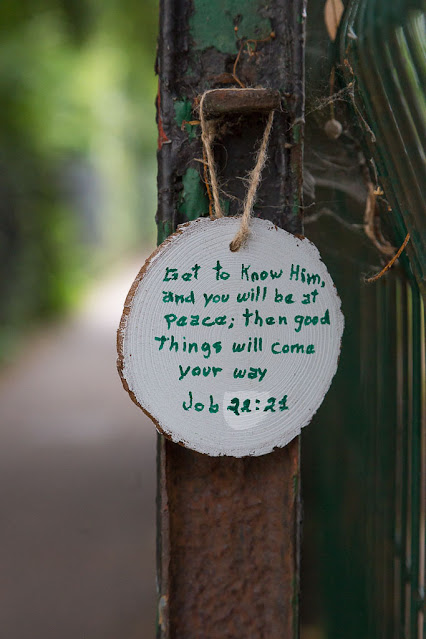 Get to Know Him,
and you will be at
peace; then good
Things will come
your way
Job 22:21